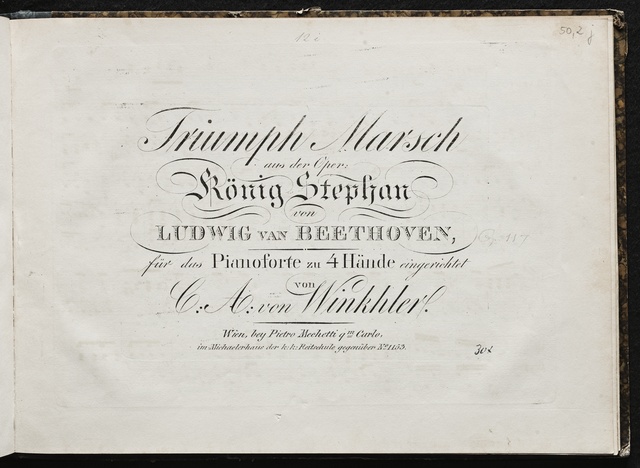 50,2 j
12 i
Triumph Marsch
aus der Oper:
König Stephan
von
LUDWIG VAN BEETHOVEN,
für das Pianoforte zu 4 Hände eingerichtet
von
C: A: von Winkhler.
Wien, bey Pietro Mechetti qm Carlo,
im Michaelerhaus der k: k: Reitschule gegenüber No. 1153.